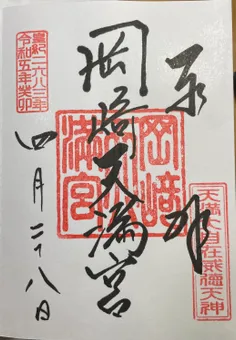 奉拝
岡崎天満宮
岡崎天満宮
天満大自在威徳天神
皇紀二六八三年
令和五年癸卯
四月二十八日